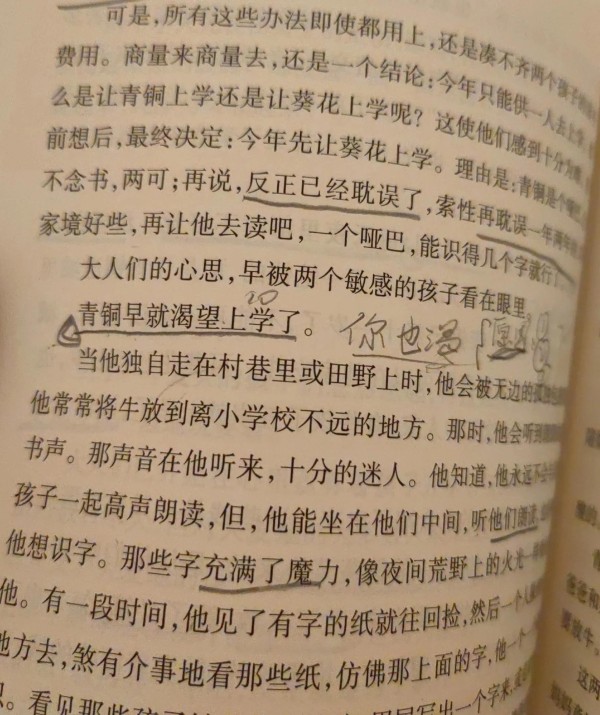 可是，所有这些办法即使都用上，还是凑不齐两个孩子的
费用。商量来商量去，还是一个结论：今年只能供一人去上学。
么是让青铜上学还是让葵花上学呢？这使他们感到十分为
前想后，最终决定：今年先让葵花上学。理由是：青铜是个哑巴
不念书，两可；再说，反正已经耽误了，索性再耽误一年两年
家境好些，再让他去读吧，一个哑巴，能识得几个字就行了
大人们的心思，早被两个敏感的孩子看在眼里。
青铜早就渴望上学了。 你也渴
当他独自走在村巷里或田野上时，他会被无边的孤独
他常常将牛放到离小学校不远的地方。那时，他会听到
书声。那声音在他听来，十分的迷人。他知道，他永远不会
孩子一起高声朗读，但，他能坐在他们中间，听他们朗读，
他想识字。那些字充满了魔力，像夜间荒野上的火光一样
他。有一段时间，他见了有字的纸就往回捡，然后一个人
地方去，煞有介事地看那些纸，仿佛那上面的字，他一个一
看见那些孩子
爸爸和
要放牛。
这两